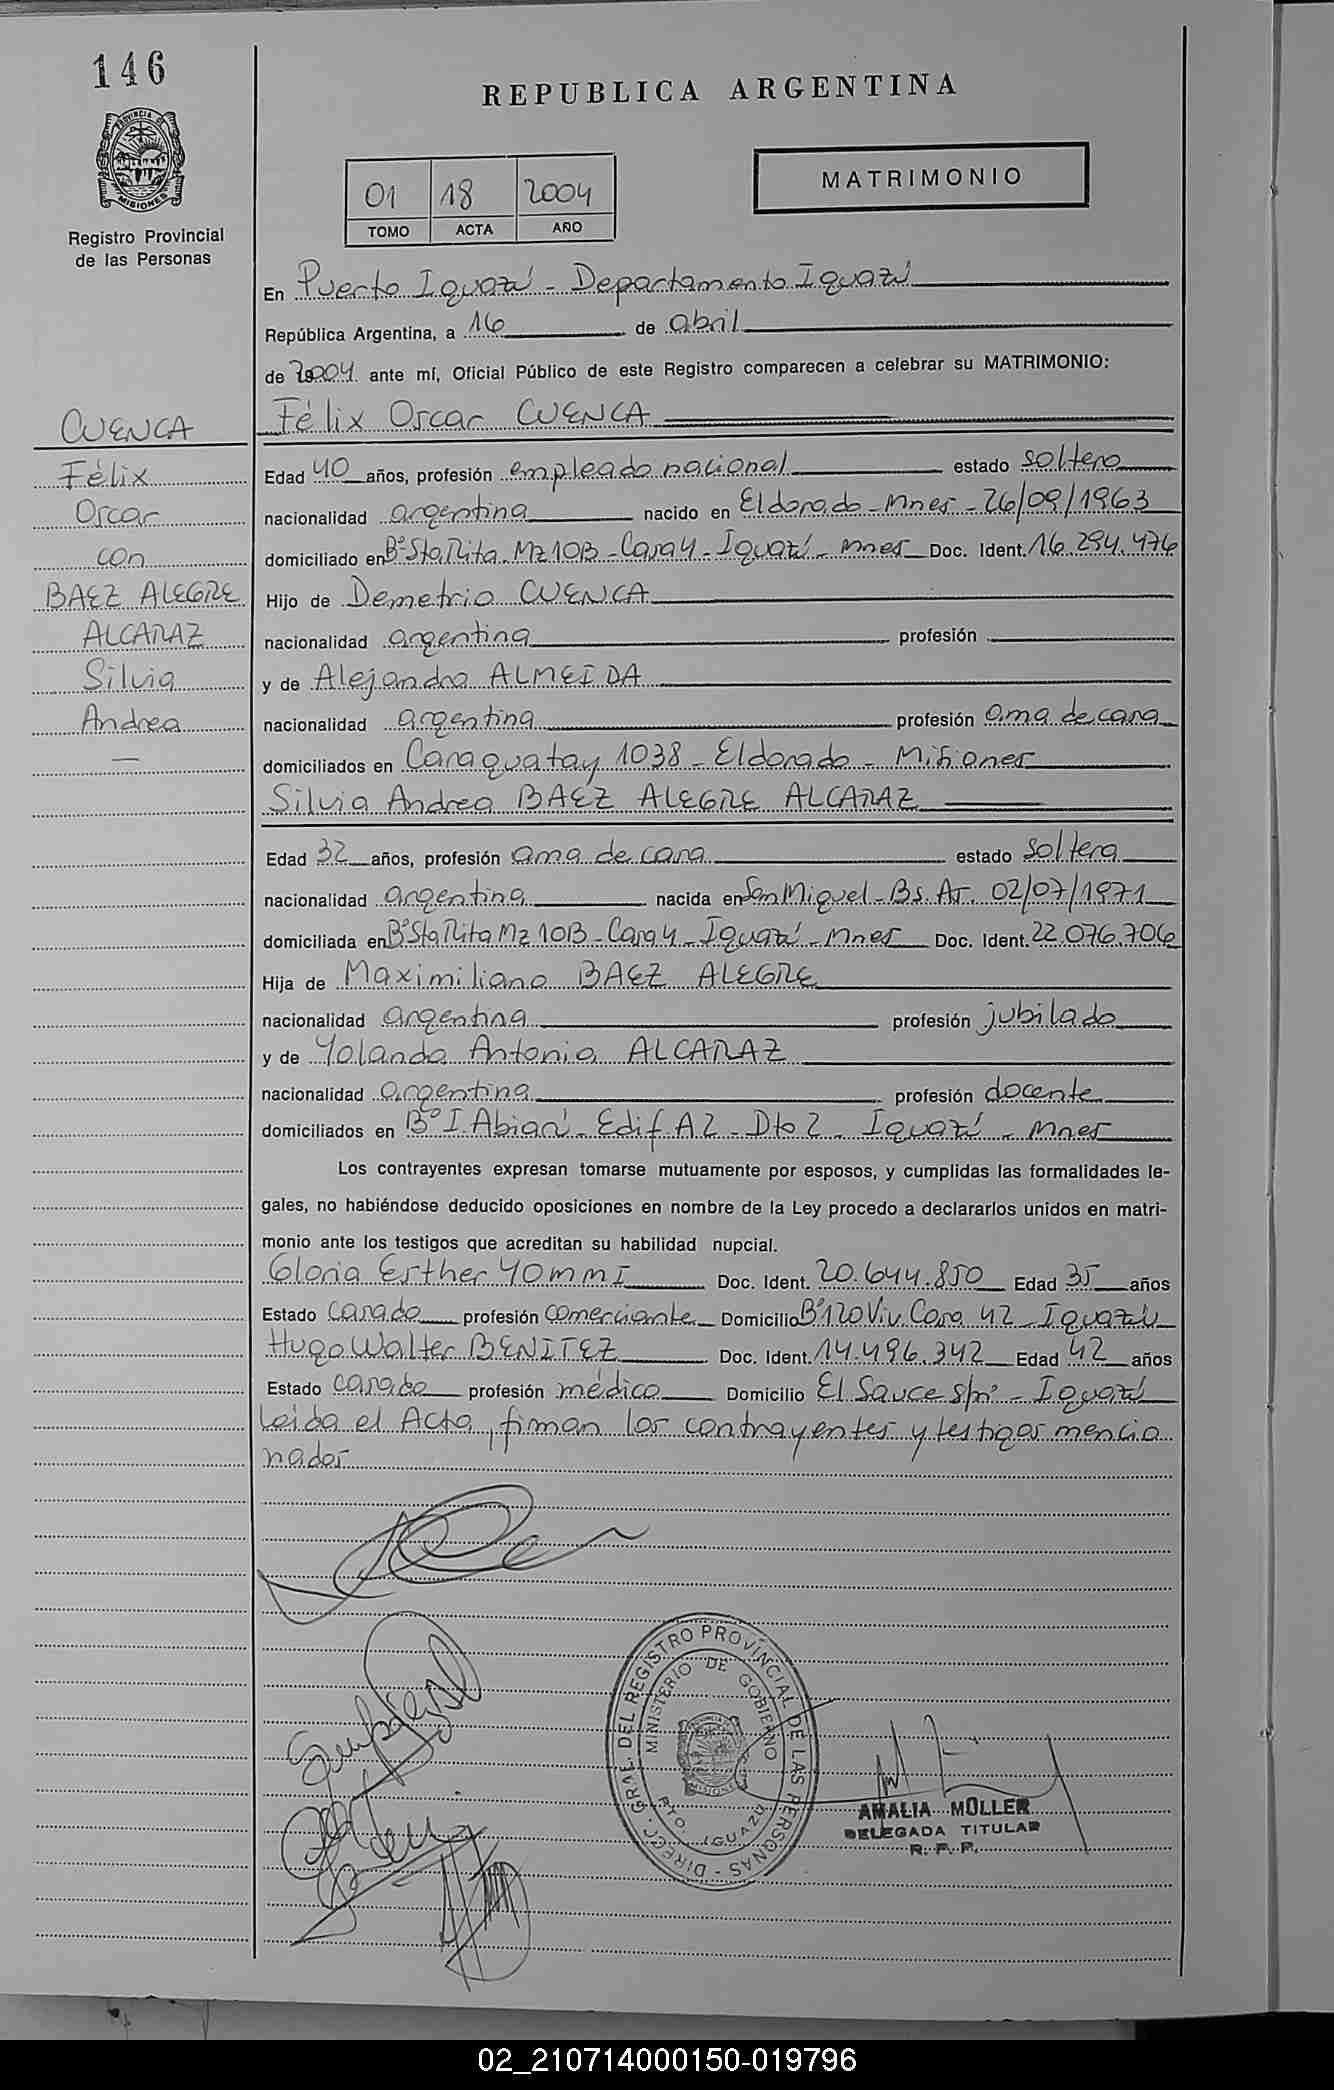 146
REPUBLICA ARGENTINA
PROVINCIA DE
MISIONES
Registro Provincial
de las Personas
01 18 2004
TOMO ACTA AÑO
MATRIMONIO
En Puerto Iguazú - Departamento Iguazú
República Argentina, a 16 de abril
de 2004 ante mí, Oficial Público de este Registro comparecen a celebrar su MATRIMONIO:
Félix Oscar CUENCA
CUENCA
Félix
Oscar
con
BAEZ ALEGRE
ALCARAZ
Silvia
Andrea
—
Edad 40 años, profesión empleado nacional estado soltero
nacionalidad argentina nacido en Eldorado - Mnes - 26/09/1963
domiciliado en Bº Sta Rita Mz 10B - Casa 4 - Iguazú - Mnes Doc. Ident. 16.294.476
Hijo de Demetrio CUENCA
nacionalidad argentina profesión
y de Alejandra ALMEIDA
nacionalidad argentina profesión ama de casa
domiciliados en Caraguatay 1038 - Eldorado - Misiones
Silvia Andrea BAEZ ALEGRE ALCARAZ
Edad 32 años, profesión ama de casa estado soltera
nacionalidad argentina nacida en San Miguel - Bs. As. 02/07/1971
domiciliada en Bº Sta Rita Mz 10B - Casa 4 - Iguazú - Mnes Doc. Ident. 22.076.706
Hija de Maximiliano BAEZ ALEGRE
nacionalidad argentina profesión jubilado
y de Yolanda Antonia ALCARAZ
nacionalidad argentina profesión docente
domiciliados en Bº I. Abian - Edif A2 - Dto 2 - Iguazú - Mnes
Los contrayentes expresan tomarse mutuamente por esposos, y cumplidas las formalidades le-
gales, no habiéndose deducido oposiciones en nombre de la Ley procedo a declararlos unidos en matri-
monio ante los testigos que acreditan su habilidad nupcial.
Gloria Esther YOMMI Doc. Ident. 20.644.850 Edad 35 años
Estado casado profesión comerciante Domicilio Bº 120 Viv. Casa 42 - Iguazú
Hugo Walter BENITEZ Doc. Ident. 14.496.342 Edad 42 años
Estado casado profesión médico Domicilio El Sauce s/nº - Iguazú
Leída el Acta, firman los contrayentes y testigos mencio
nados
DIREC. GRAL. DEL REGISTRO PROVINCIAL DE LAS PERSONAS
MINISTERIO DE GOBIERNO
PTO. IGUAZU
AMALIA MÜLLER
DELEGADA TITULAR
R. P. P.
02_210714000150-019796